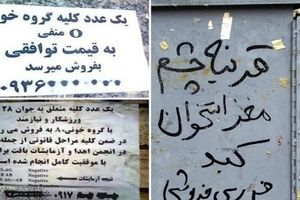 یک عدد کلیه گروه خو
O منفی
به قیمت توافقی
بفروش میرسد
یک عدد کلیه متعلق به جوان ۲۸
ورزشکار و نیازمند
با گروه خونی
به فروش می
در ضمن کلیه مراحل قانونی از جمله
در انجمن اهدا و آزمایشات بافت
با موفقیت کامل انجام شده است
نتیجه آزمایشات
Negative
Negative
قرنیه چشم
مغز استخوان
کبد
فوری فروشی